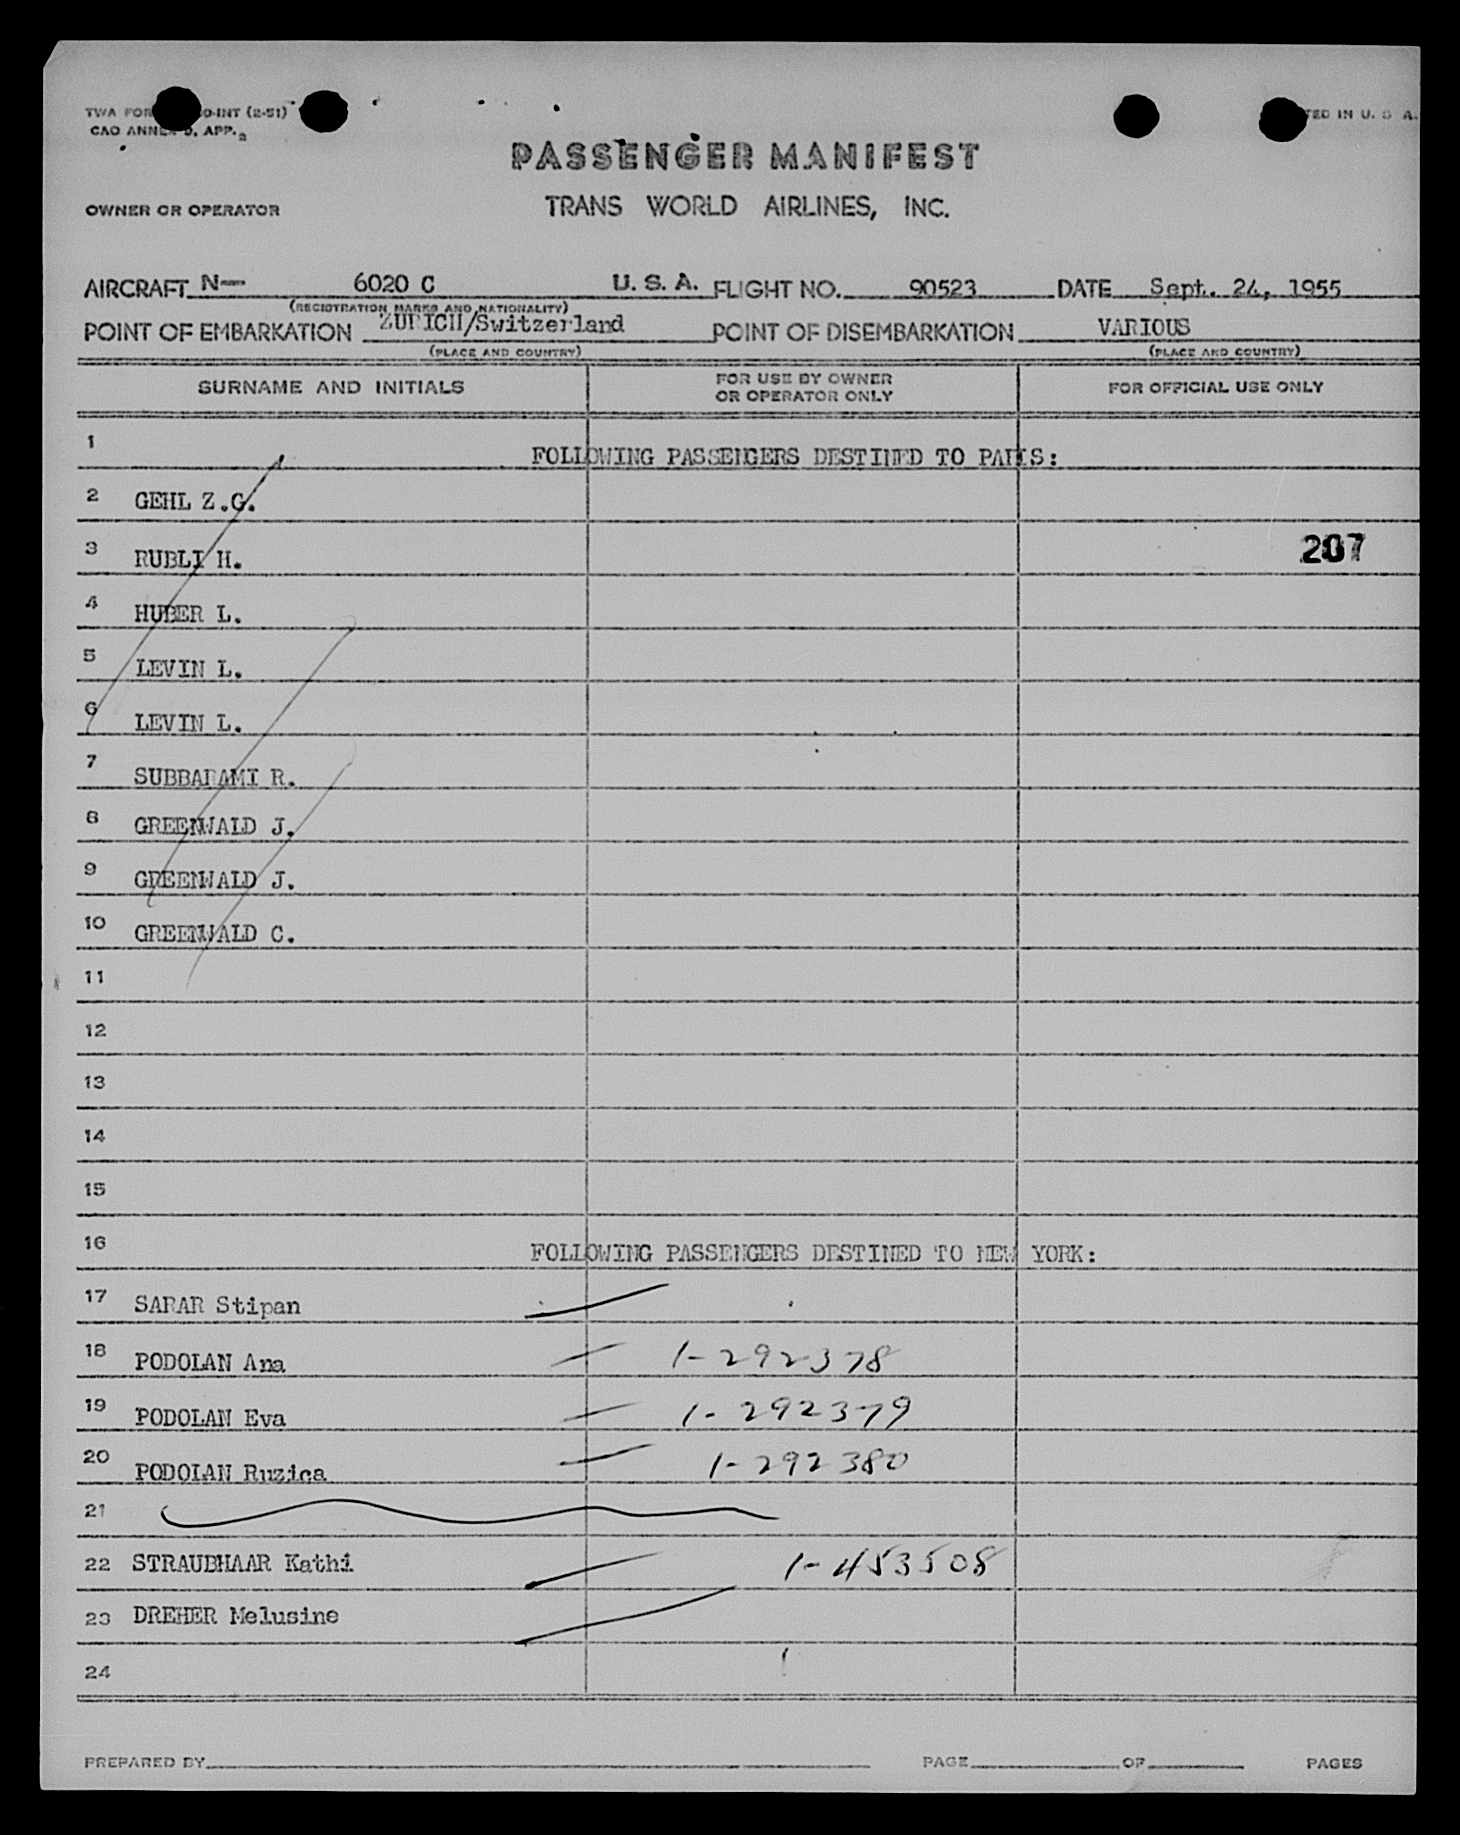 TWA FOR O-INT (2-51)
TED IN U. S. A.
CAO ANNEX 9, APP. 2
PASSENGER MANIFEST
OWNER OR OPERATOR TRANS WORLD AIRLINES, INC.
AIRCRAFT N— 6020 C U. S. A. FLIGHT NO. 90523 DATE Sept. 24, 1955
(REGISTRATION MARKS AND NATIONALITY)
POINT OF EMBARKATION ZURICH/Switzerland POINT OF DISEMBARKATION VARIOUS
(PLACE AND COUNTRY) (PLACE AND COUNTRY)
SURNAME AND INITIALS FOR USE BY OWNER OR OPERATOR ONLY FOR OFFICIAL USE ONLY
1 FOLLOWING PASSENGERS DESTINED TO PARIS:
2 GEHL Z.G.
3 RUBLI H. 207
4 HUBER L.
5 LEVIN L.
6 LEVIN L.
7 SUBBARAMI R.
8 GREENWALD J.
9 GREENWALD J.
10 GREENWALD C.
11
12
13
14
15
16 FOLLOWING PASSENGERS DESTINED TO NEW YORK:
17 SARAR Stipan
18 PODOLAN Ana 1-292378
19 PODOLAN Eva 1-292379
20 PODOLAN Ruzica 1-292380
21
22 STRAUBHAAR Kathi 1-453508
23 DREHER Melusine
24
PREPARED BY PAGE OF PAGES